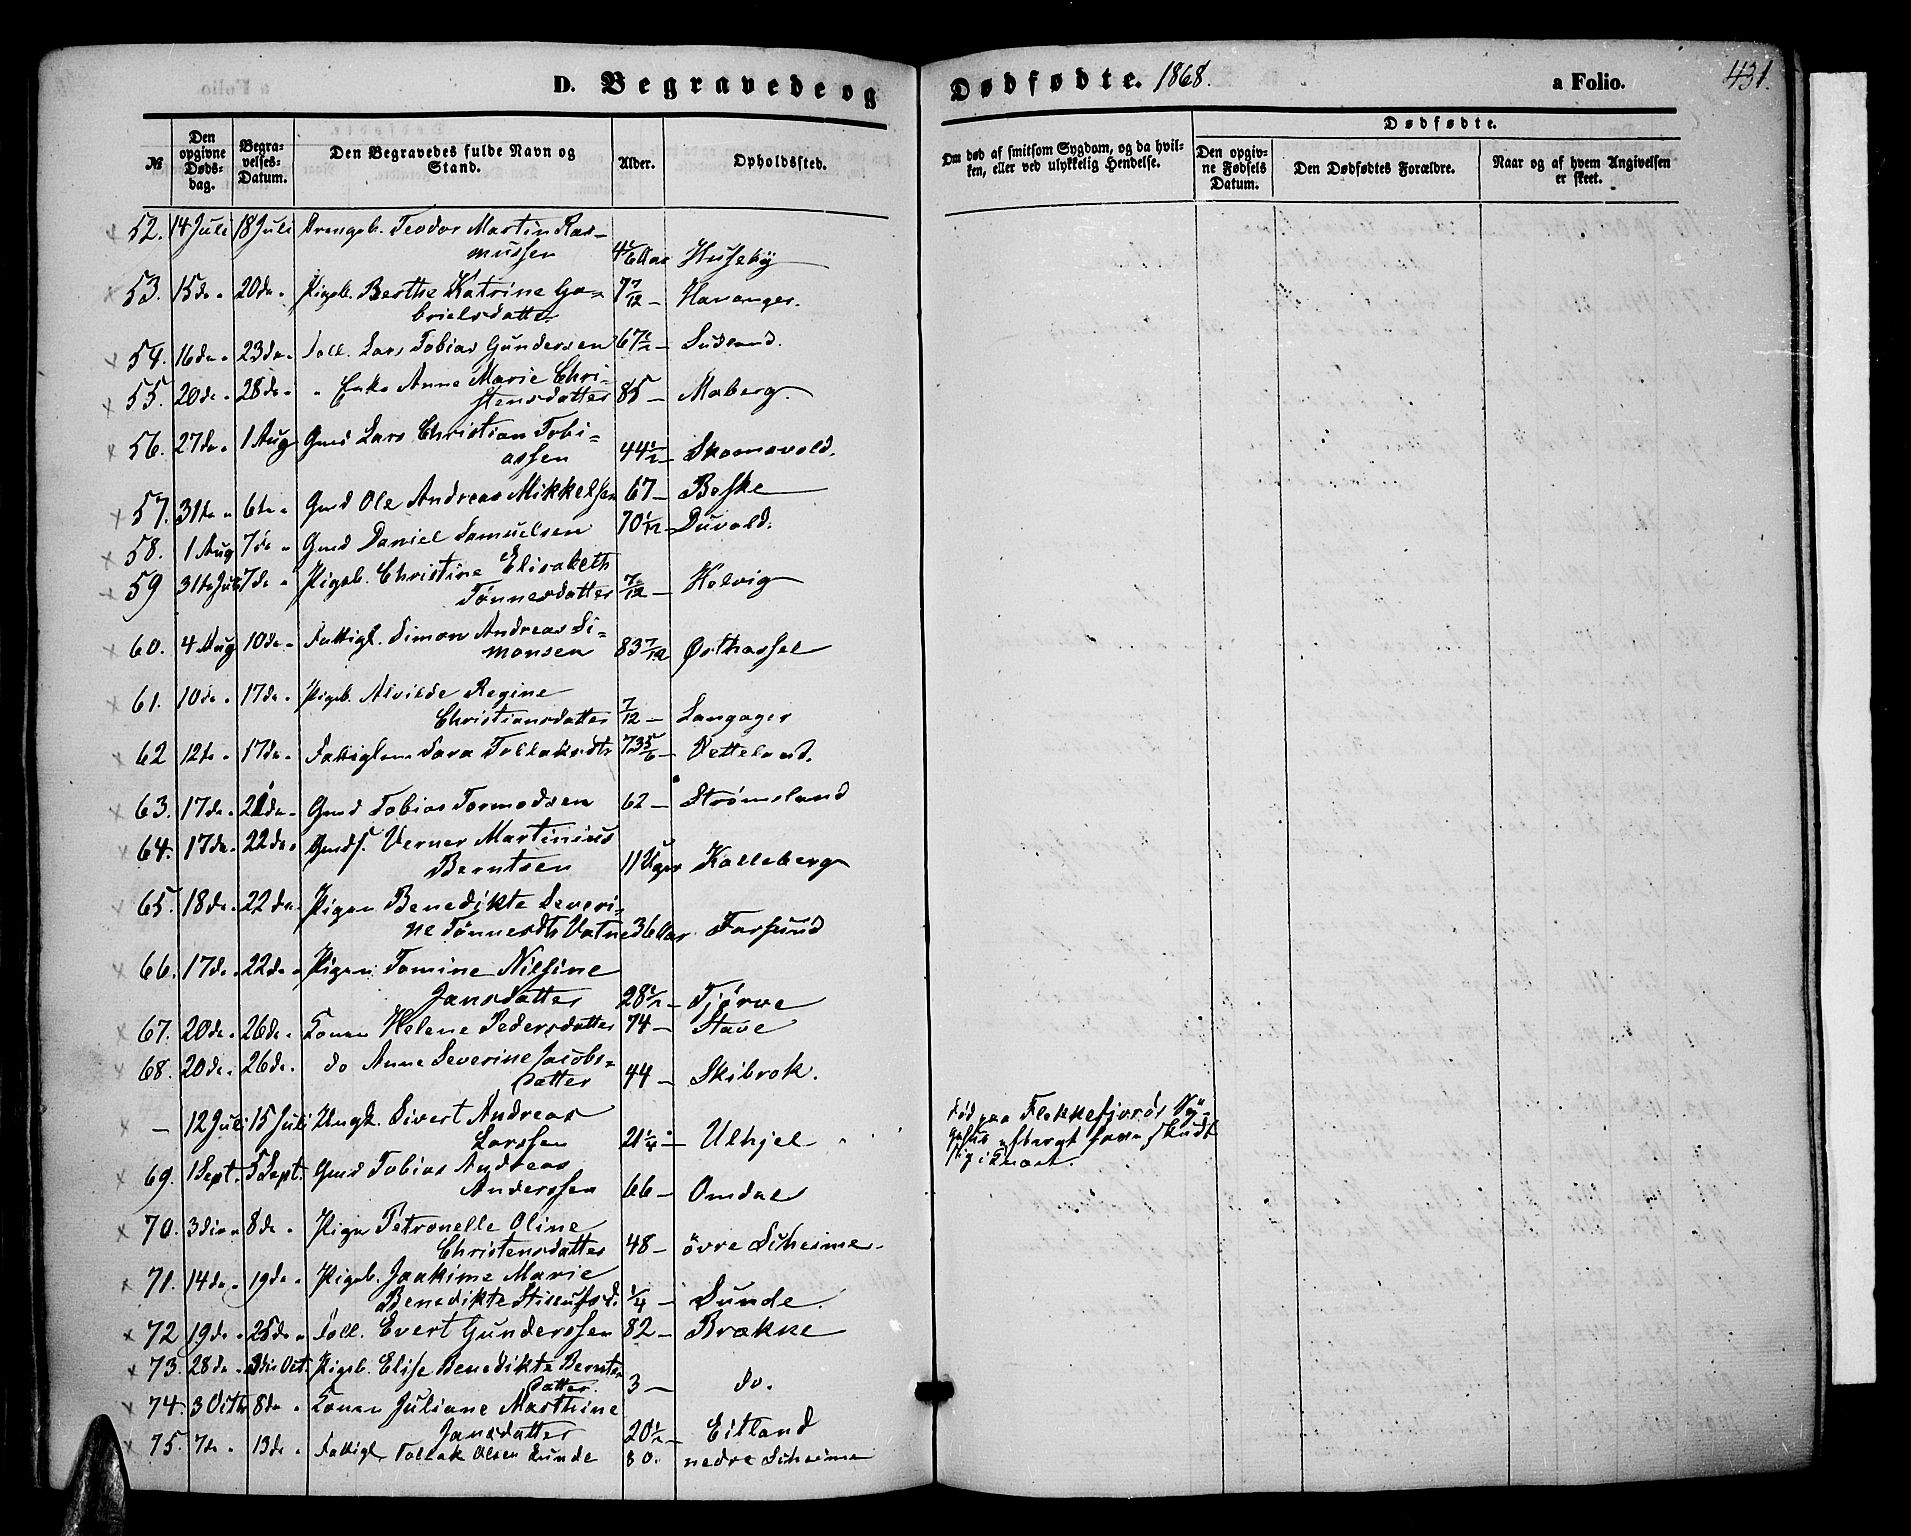 D. Begravede og
Dødfødte. 1868.
a Folio.
431.
№
Den opgivne Døds-dag.
Begra-velses-Datum.
Den Begravedes fulde Navn og Stand.
Alder.
Opholdssted.
Om død af smitsom Sygdom, og da hvil-ken, eller ved ulykkelig Hendelse.
Dødfødte.
Den opgiv-ne Fødsels Datum.
Den Dødfødtes Forældre.
Naar og af hvem Angivelsen er skeet.
52. 14 Juli 18 Juli Drengeb. Teodor Martin Ras-
mussen Huseby
53. 15 de 20 de Pigeb. Berthe Katrine Ga-
brielsdatter 7 7/12 — Havanger.
54. 16 de 23 de Foll. Lars Tobias Gundersen 67 1/2 — Ludland.
55. 20 de 28 de Enke Anne Marie Chri-
stensdatter 85 — Maberg.
56. 27 de 1 Aug Gmd Lars Christian Tobi-
assen 44 1/2 — Skomevold.
57. 31te 6te Gmd Ole Andreas Mikkelsen 67 — Boske
58. 1 Aug 7de Gmd Daniel Samuelsen 70 1/12 — Duvold.
59 31te Juli 7de Pigeb. Christine Elisabeth
Tønnesdatter 7/12 — Helvig
60. 4 Aug 10de Fattigl. Simon Andreas Si-
monsen 83 7/12 Østhassel
61. 10de 17de Pigeb. Alvilde Regine
Christiansdatter 7/12 — Langager
62 12te 17de Fattiglem Sara Tollaksdtr 73 5/6 — Vetteland.
63. 17de 21de Gmd Tobias Tormodsen 62 — Strømsland
64. 17de 22de Gmds. Verner Martinius
Berntsen 11 Uger Kalleberg
65. 18de 22de Pigen Benedikte Severi-
ne Tønnesdtr Vatne 36 Aar Farsund
66. 17de 22de Pigen Tomine Nilsine
Jansdatter 28 1/2 — Tjørve
67. 20de 26de Konen Helene Pedersdatter 74 — Stave
68. 20de 26de do Anne Severine Jacobs-
datter 44 — Skibrok.
— 12 Juli 15 Juli Ungk. Sivert Andreas
Larssen 21 1/4 — Ulhjel
Død paa Flekkefjords Sy-
69. 1 Sept. 5 Sept. Gmd Tobias Andreas
Anderssen 66 — Omdal
70. 3die 8de Pigen Petronelle Oline
Christensdatter 48 — övre Skeime
71. 14de 19de Pigeb. Joakime Marie
Benedikte 1/4 — Sunde.
72 19de 25de Foll. Evert Gunderssen 82 — Brækne
73. 28de 3die Oct. Pigeb. Elise Benedikte Bernts-
datter. 3 — do.
74. 3 Octbr 8de Konen Juliane Marthine
Jansdatter 20 1/2 — Eitland
75. 7de 13de Fattigl. Tollak Olsen Lunde 80. nedre Skeime